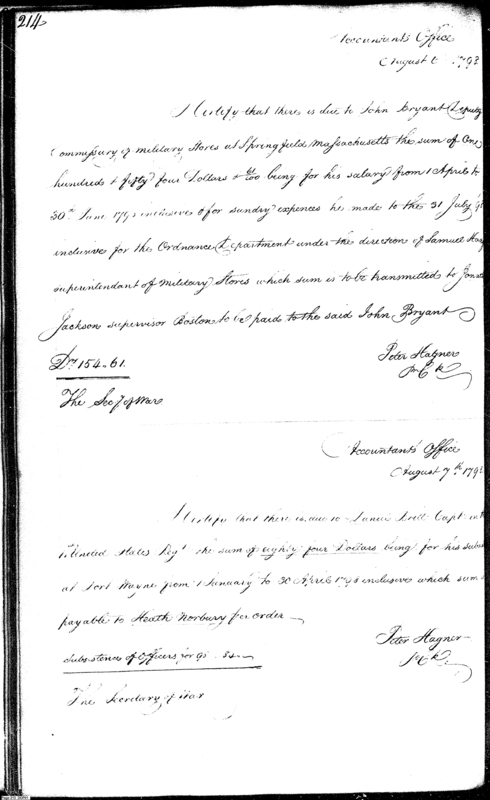 214
Accountants Office
August 6 179
I Certify that there is due to John Bryant Deputy
Commissary of military Stores at Springfield Massachusetts the sum of One
hundred & fifty four Dollars & 61/100 being for his salary from 1 April to
30th June 179 inclusive & for sundry expences he made to the 31 July
inclusive for the Ordnance Department under the direction of Samuel
superintendant of Military Stores which sum is to be transmitted to
Jackson supervisor Boston to be paid to the said John Bryant
Drs 154.61.
Peter Hagner
The Secy of War
Accountants' Office
August 7th 179
I Certify that there is due to Capt in
United States the sum of eighty four Dollars being for his
at Fort Wayne from 1 January to 30 April 179 inclusive which sum
payable to Heath Norbury per order
Subsistence of Officers for 84
Peter Hagner
The Secretary of War